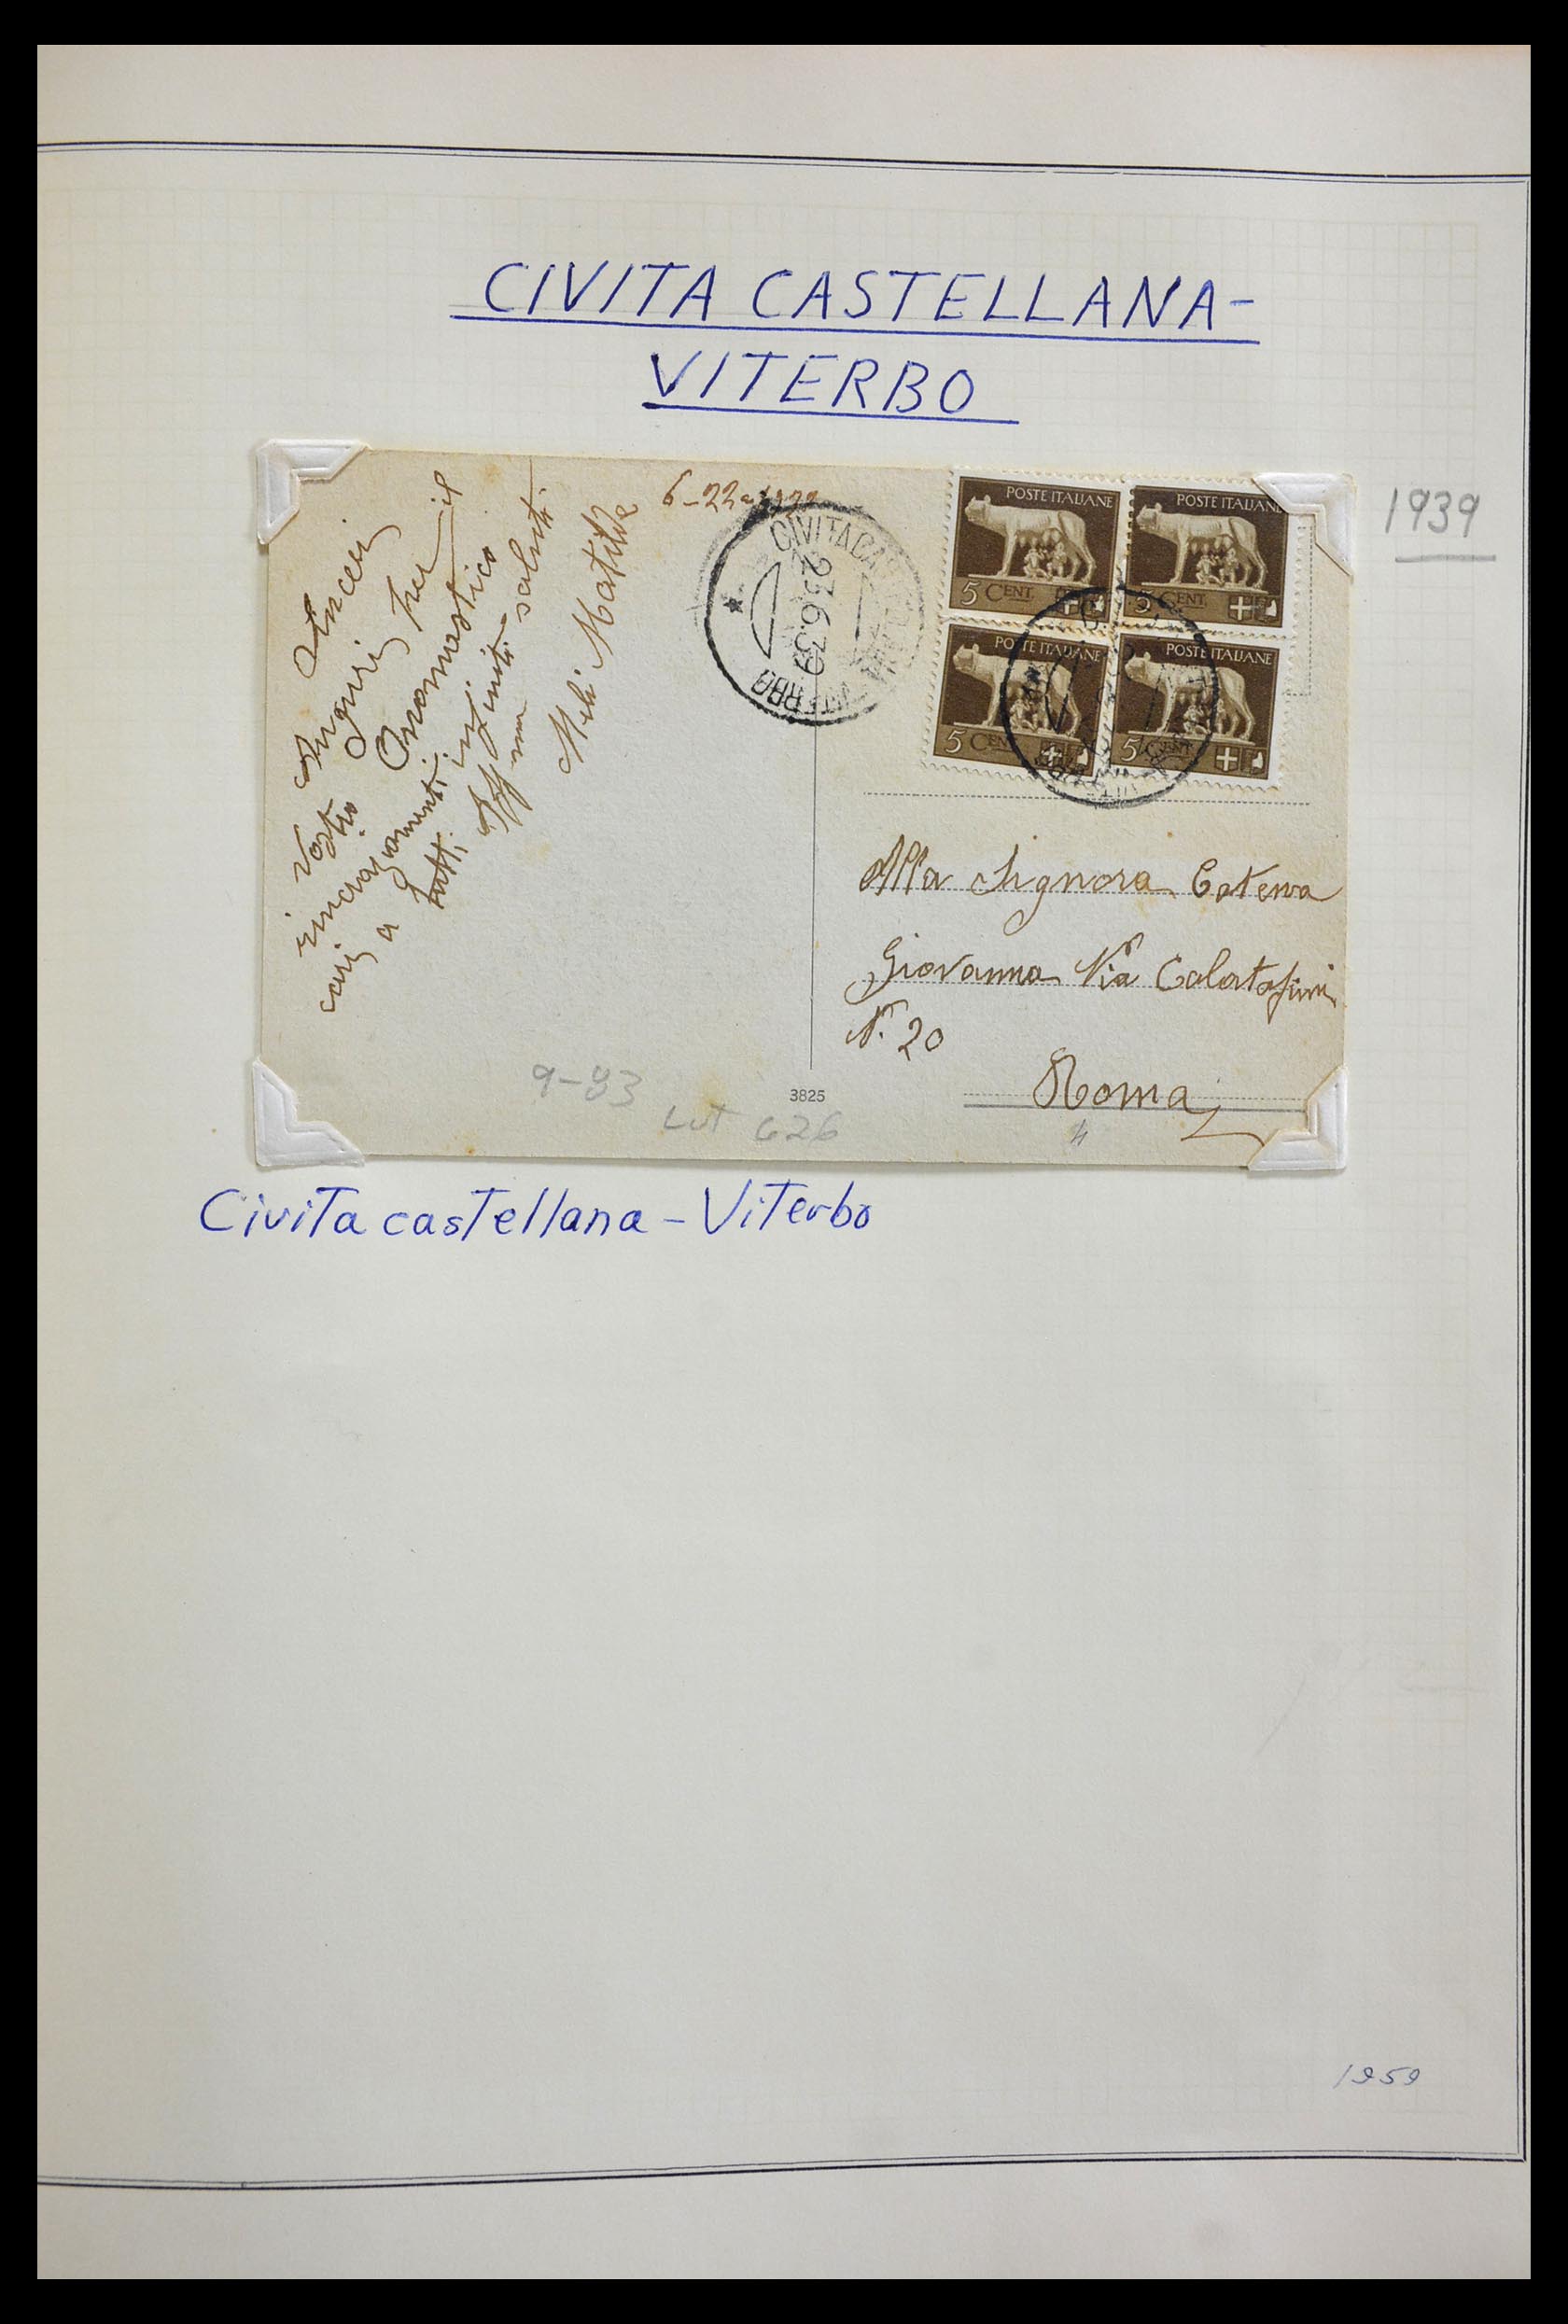 CIVITA CASTELLANA-
VITERBO
1939
Sinceri
Auguri per il
Vostro Onomastico
ringraziamenti infiniti
cari saluti
a tutti
Aff.ma
Matilde
6-22-
CIVITA CAS
23.6.39
VITERBO
POSTE ITALIANE
5 CENT.
POSTE ITALIANE
5 CENT.
POSTE ITALIANE
5 CENT.
POSTE ITALIANE
5 CENT.
Alla Signora
Giovanna Via Calatafimi
N. 20
Roma
9-93
Lot 626
3825
Civita castellana - Viterbo
1959